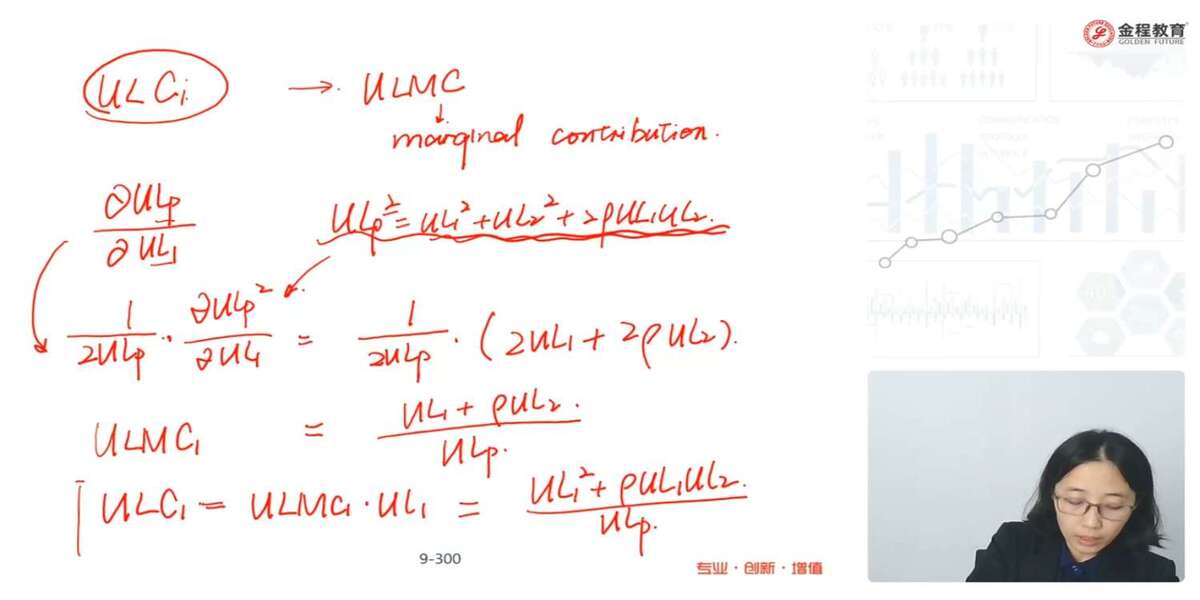 金程教育
GOLDEN FUTURE
ULCi → ULMC
↓
marginal contribution.
∂ULp / ∂UL1
ULp² = UL1² + UL2² + 2ρUL1UL2.
1 / 2ULp · ∂ULp² / ∂UL1 = 1 / 2ULp · (2UL1 + 2ρUL2).
ULMC1 = UL1 + ρUL2. / ULp.
ULC1 = ULMC1 · UL1 = UL1² + ρUL1UL2. / ULp.
9-300
专业・创新・增值